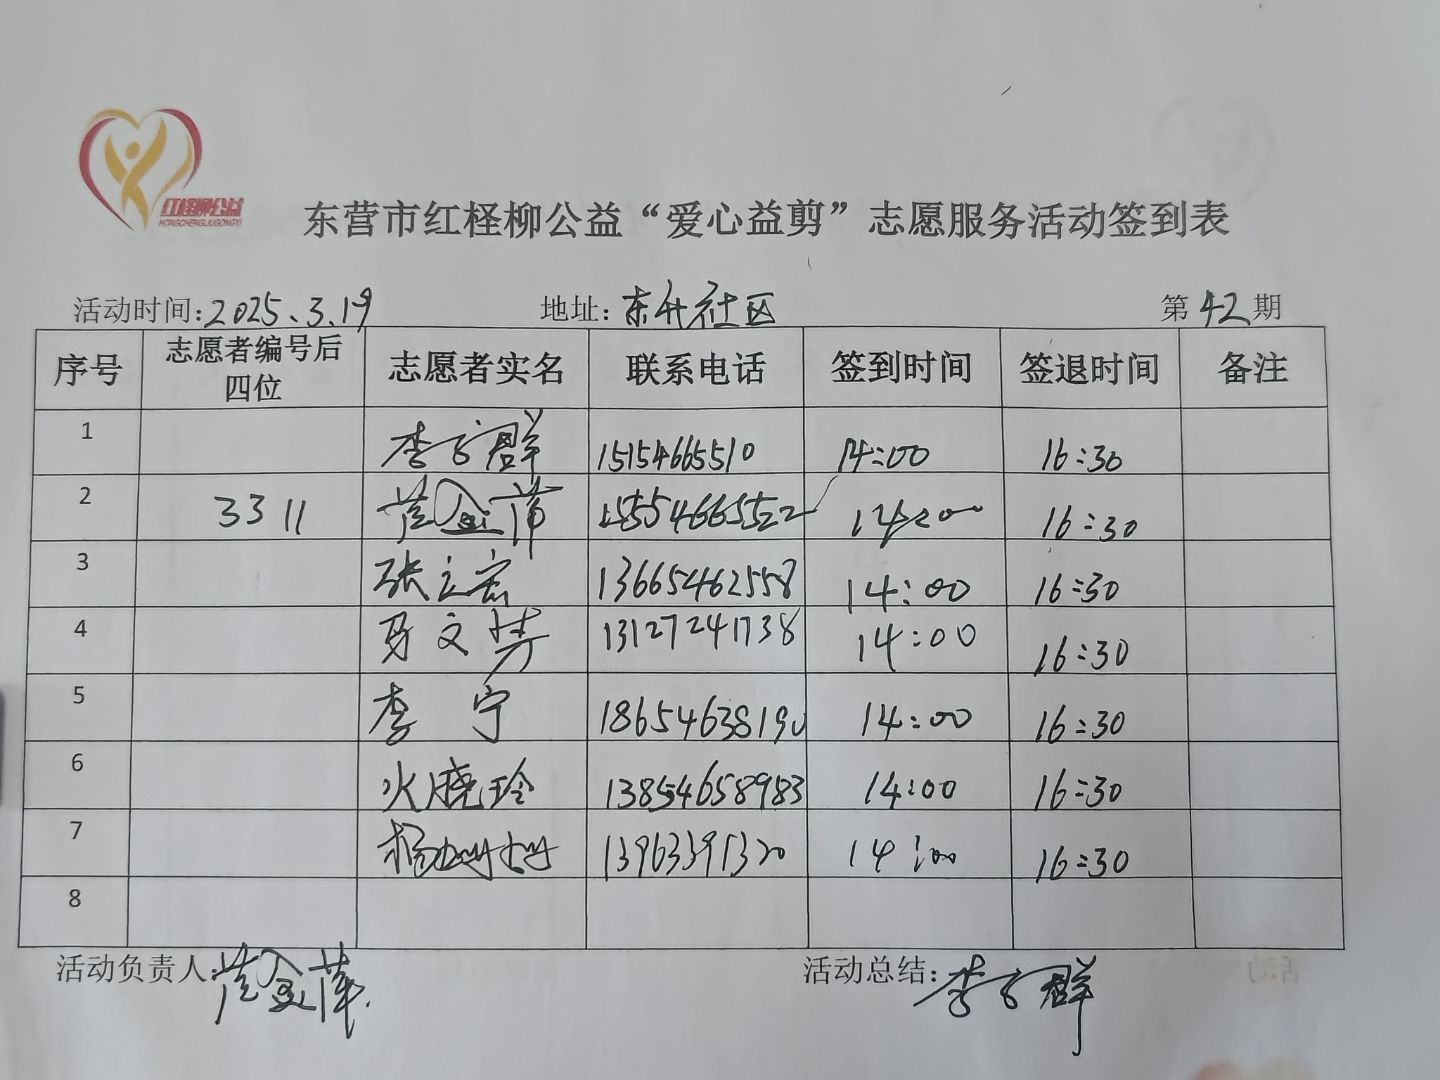 红柽柳公益
HONGCHENGLIUGONGYI
东营市红柽柳公益“爱心益剪”志愿服务活动签到表
活动时间:2025.3.19 地址:东升社区 第42期
序号 志愿者编号后四位 志愿者实名 联系电话 签到时间 签退时间 备注
1 李子群 15154665510 14:00 16:30
2 3311 金萍 15554665522 14:00 16:30
3 张立宏 13665462558 14:00 16:30
4 文芳 13127241738 14:00 16:30
5 李宁 18654638190 14:00 16:30
6 火晓玲 13854658983 14:00 16:30
7 杨姗姗 13963391320 14:00 16:30
8
活动负责人:金萍 活动总结:李子群